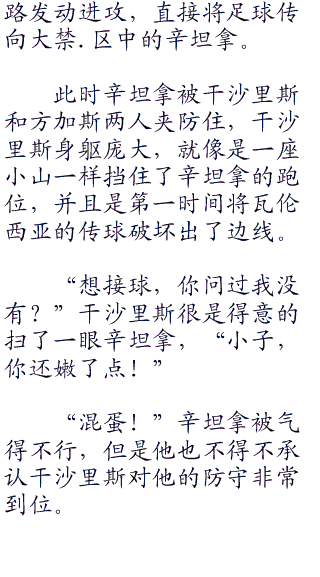 路发动进攻，直接将足球传
向大禁.区中的辛坦拿。
此时辛坦拿被干沙里斯
和方加斯两人夹防住，干沙
里斯身躯庞大，就像是一座
小山一样挡住了辛坦拿的跑
位，并且是第一时间将瓦伦
西亚的传球破坏出了边线。
“想接球，你问过我没
有？”干沙里斯很是得意的
扫了一眼辛坦拿，“小子，
你还嫩了点！”
“混蛋！”辛坦拿被气
得不行，但是他也不得不承
认干沙里斯对他的防守非常
到位。